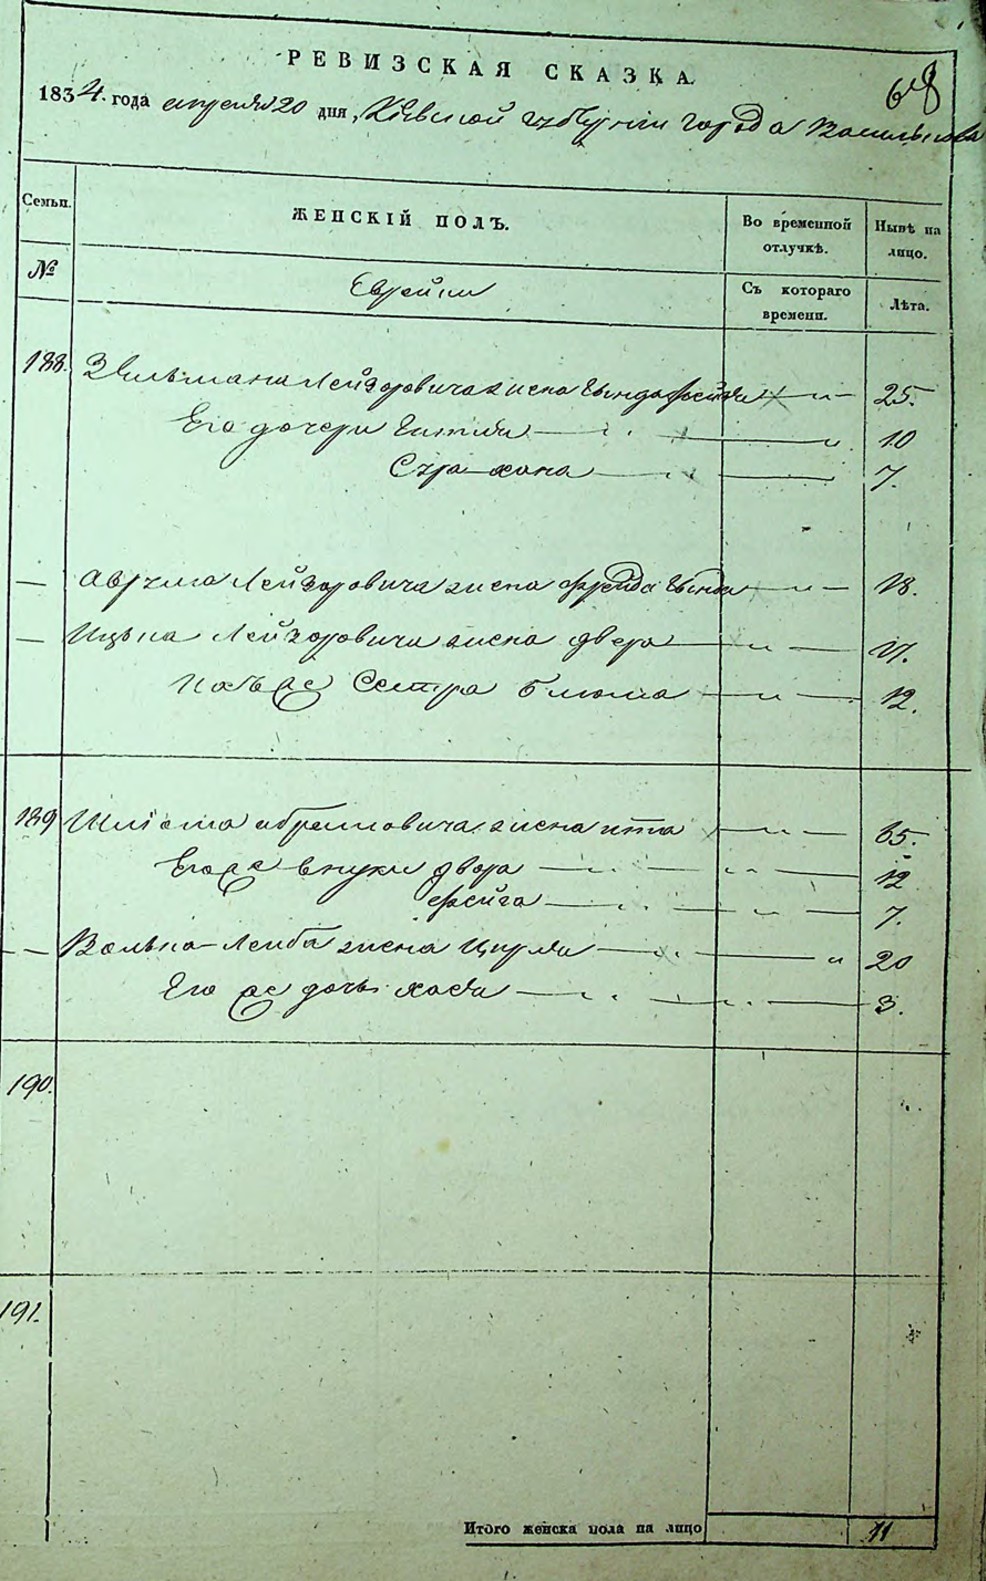 РЕВИЗСКАЯ СКАЗКА.
68
1834. года апреля 20 дня, Кіевской губерніи города Василькова
Семьи.
ЖЕНСКІЙ ПОЛЪ.
Во временной отлучкѣ.
Нынѣ на лицо.
№
Еврейки
Съ котораго времени.
Лѣта.
188. Зельмана Лейзоровича жена — „ — 25.
Его дочери Гитля — „ 10
Сура хана — 7.
— Аврума Лейзоровича жена Фрейда — „ — 18.
— Ицька Лейзоровича жена двера — „ — 17.
Сестра блюма — „ — 12.
189 Шліома абрамовича жена ита — „ — 65.
Егоже внуки двора — „ — 12
фейга — „ — 7.
— Волька Лейба жена Цирля — „ 20
Его же дочь хася — „ — 3.
190.
191.
Итого женска пола на лицо 11